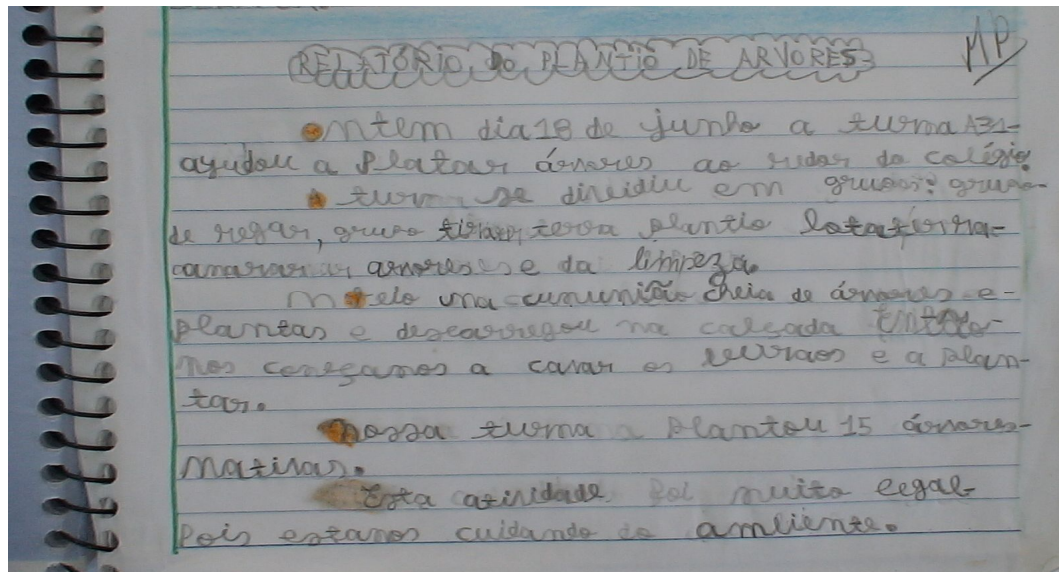 RELATÓRIO DO PLANTIO DE ARVORES
MP
ontem dia 18 de junho a turma A31-
ayudou a platar árvores ao redor do colégio.
a turma se dividiu em grupos: grupo
de regar, grupo terra plantio
arvores e da limpeza.
veio uma cheia de árvores e-
plantas e descarregou na calçada
nos começamos a cavar os e a plan-
tar.
nossa turma a plantou 15 árvores-
nativas.
Esta atividade foi muito legal
pois estamos cuidando do ambiente.